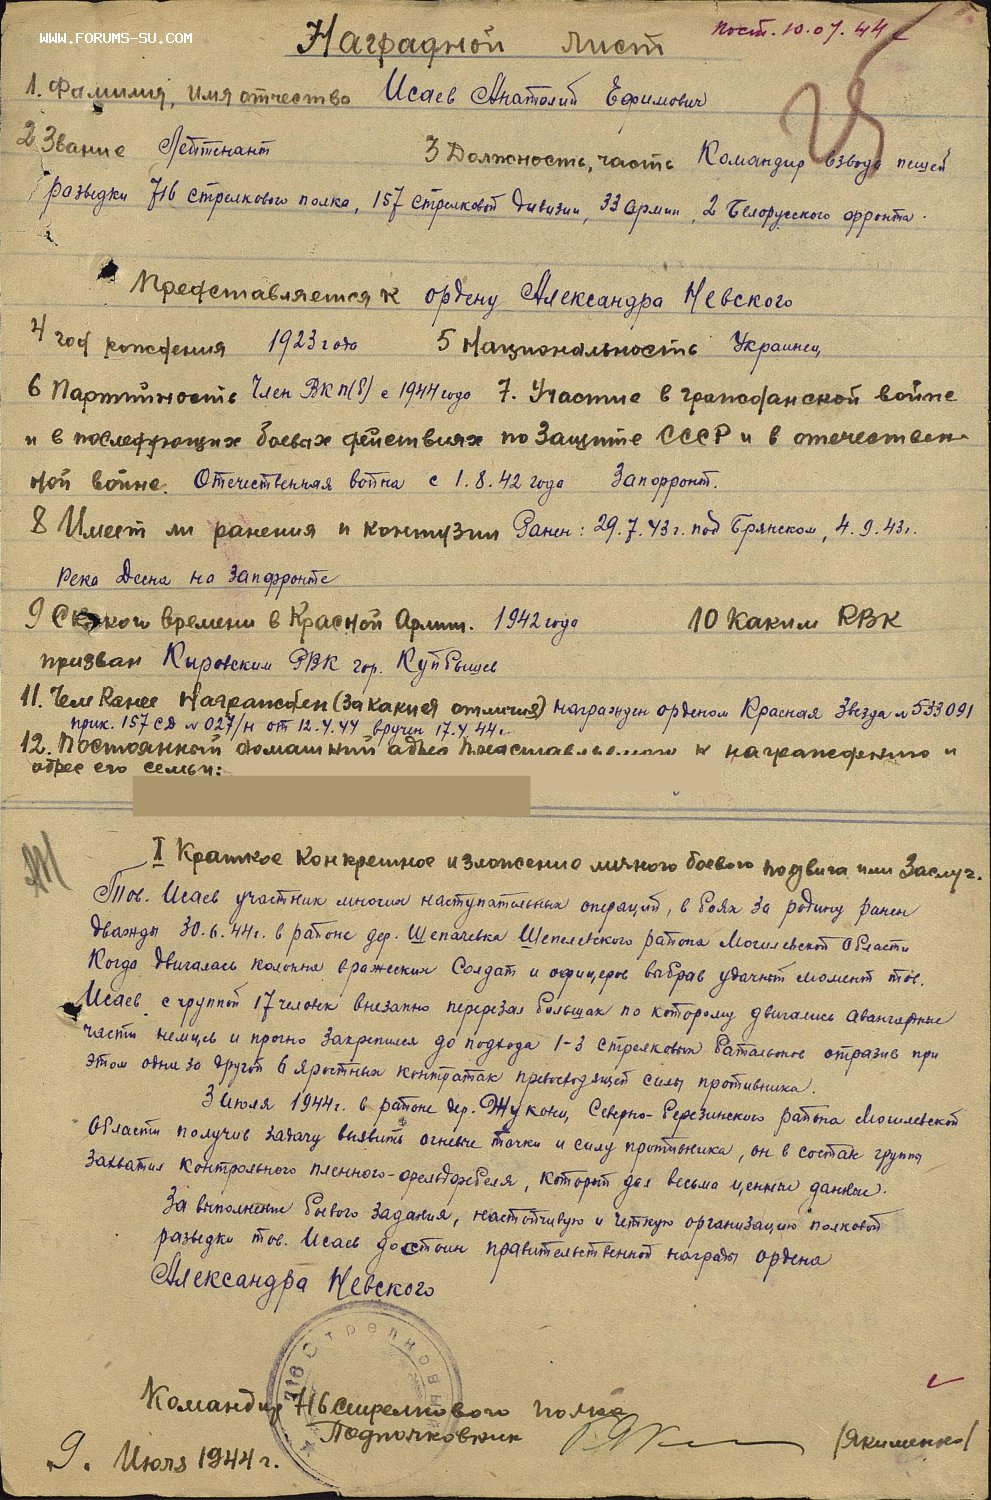 WWW.FORUMS-SU.COM
Пост. 10.07.44
Наградной лист
1. Фамилия, имя отчество Исаев Анатолий Ефимович
2 Звание Лейтенант 3 Должность, часть Командир взвода пешей
разведки 716 стрелкового полка, 157 стрелковой дивизии, 33 армии, 2 Белорусского фронта.
Представляется к ордену Александра Невского
4 год рождения 1923 года 5 Национальность Украинец
6 Партийность Член ВКП(б) с 1944 года 7. Участие в гражданской войне
и в последующих боевых действиях по защите СССР и в отечествен-
ной войне. Отечественная война с 1.8.42 года Запфронт.
8 Имеет ли ранения и контузии Ранен: 29.7.43г. под Брянском, 4.9.43г.
река Десна на Запфронте
9 С какого времени в Красной Армии. 1942 года 10 Каким РВК
призван Кировским РВК гор. Куйбышев
11. Чем Ранее Награжден (за какие отличия) награжден орденом Красная Звезда № 533091
прик. 157 СД № 027/н от 12.4.44 вручен 17.4.44г.
12. Постоянный домашний адрес представляемого к награждению и
адрес его семьи:
I Краткое конкретное изложение личного боевого подвига или Заслуг.
Тов. Исаев участник многих наступательных операций, в боях за родину ранен
дважды 30.6.44г. в районе дер. Шепачевка Шепелевского района Могилевской области
Когда двигалась колонна вражеских солдат и офицеров выбрав удачный момент тов.
Исаев с группой 17 человек внезапно перерезал большак по которому двигались авангардные
части немцев и прочно закрепился до подхода 1-3 стрелковых батальонов отразив при
этом одна за другой 6 яростных контратак превосходящей силы противника.
3 июля 1944г. в районе дер. Жуковец, Северно-Березинского района Могилевской
области получив задачу выявить огневые точки и силу противника, он в составе группы
захватил контрольного пленного-фельдфебеля, который дал весьма ценные данные.
За выполнение боевого задания, настойчивую и четкую организацию полковой
разведки тов. Исаев достоин правительственной награды ордена
Александра Невского
716 Стрелковый
Командир 716 стрелкового полка
Подполковник /Якименко/
9. Июля 1944г.